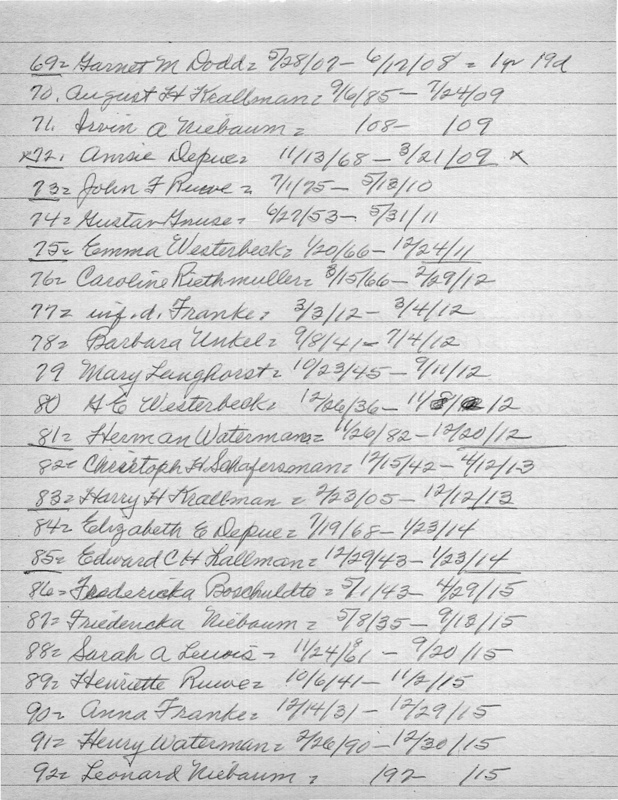 69= Garnet M Dodd = 5/28/07 - 6/17/08 = 1 yr 19d
70. August H Krallman = 9/6/85 - 7/24/09
71. Irvin A Niebaum = 108 - 109
x72. Amsie Depue = 11/13/68 - 3/21/09 x
73= John F Ruwe = 7/1/75 - 5/13/10
74= Gustav Gnuse = 6/27/53 - 5/31/11
75= Emma Westerbeck = 1/20/66 - 12/24/11
76= Caroline Riethmuller = 3/15/66 - 2/29/12
77= inf. d. Franke = 3/3/12 - 3/4/12
78= Barbara Unkel = 9/8/41 - 7/4/12
79 Mary Langhorst = 10/23/45 - 9/11/12
80 H E Westerbeck = 12/26/36 - 11/8/12
81= Herman Waterman = 11/26/82 - 12/20/12
82= Christoph H Schafersman = 12/15/42 - 4/12/13
83= Harry H Krallman = 2/23/05 - 12/12/13
84= Elizabeth E Depue = 7/19/68 - 1/23/14
85= Edward C H Kallman = 12/29/43 - 1/23/14
86= Fredericka Boschuldte = 5/1/43 - 4/29/15
87= Friedericka Niebaum = 5/8/35 - 9/13/15
88= Sarah A Lewis = 11/24/61 - 9/20/15
89= Henriette Ruwe = 10/6/41 - 11/2/15
90= Anna Franke = 12/14/31 - 12/29/15
91= Henry Waterman = 2/26/90 - 12/30/15
92= Leonard Niebaum = 192 - /15